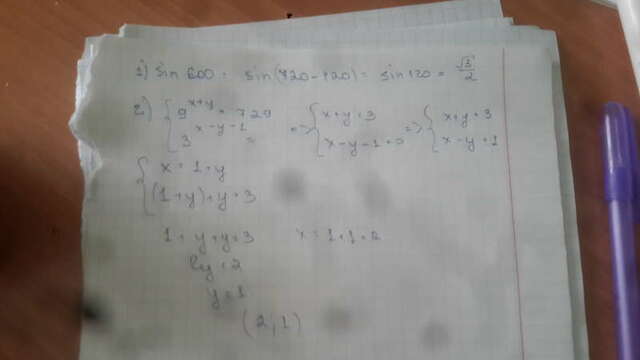 1) sin 600 = sin(720-120) = sin 120 = √3/2
2) { 9^x+y = 729 => { x+y=3 => { x+y=3
{ 3^x-y-1 = { x-y-1=0 { x-y=1
{ x=1+y
{ (1+y)+y=3
1+y+y=3 x=1+1=2
2y=2
y=1
(2;1)